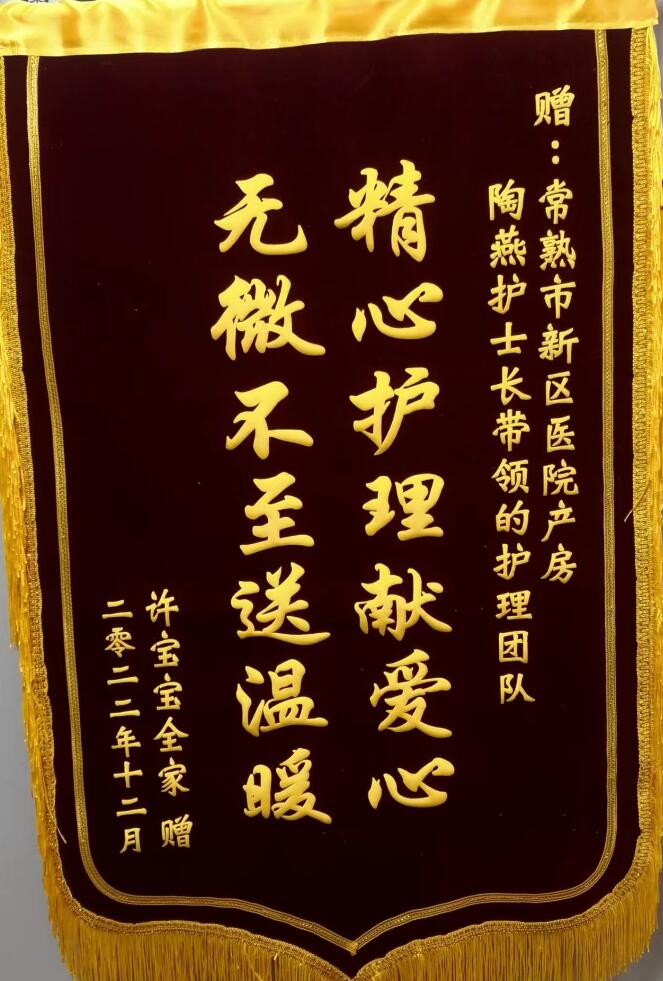 赠：常熟市新区医院产房
陶燕护士长带领的护理团队
精心护理献爱心
无微不至送温暖
许宝宝全家 赠
二零二二年十二月